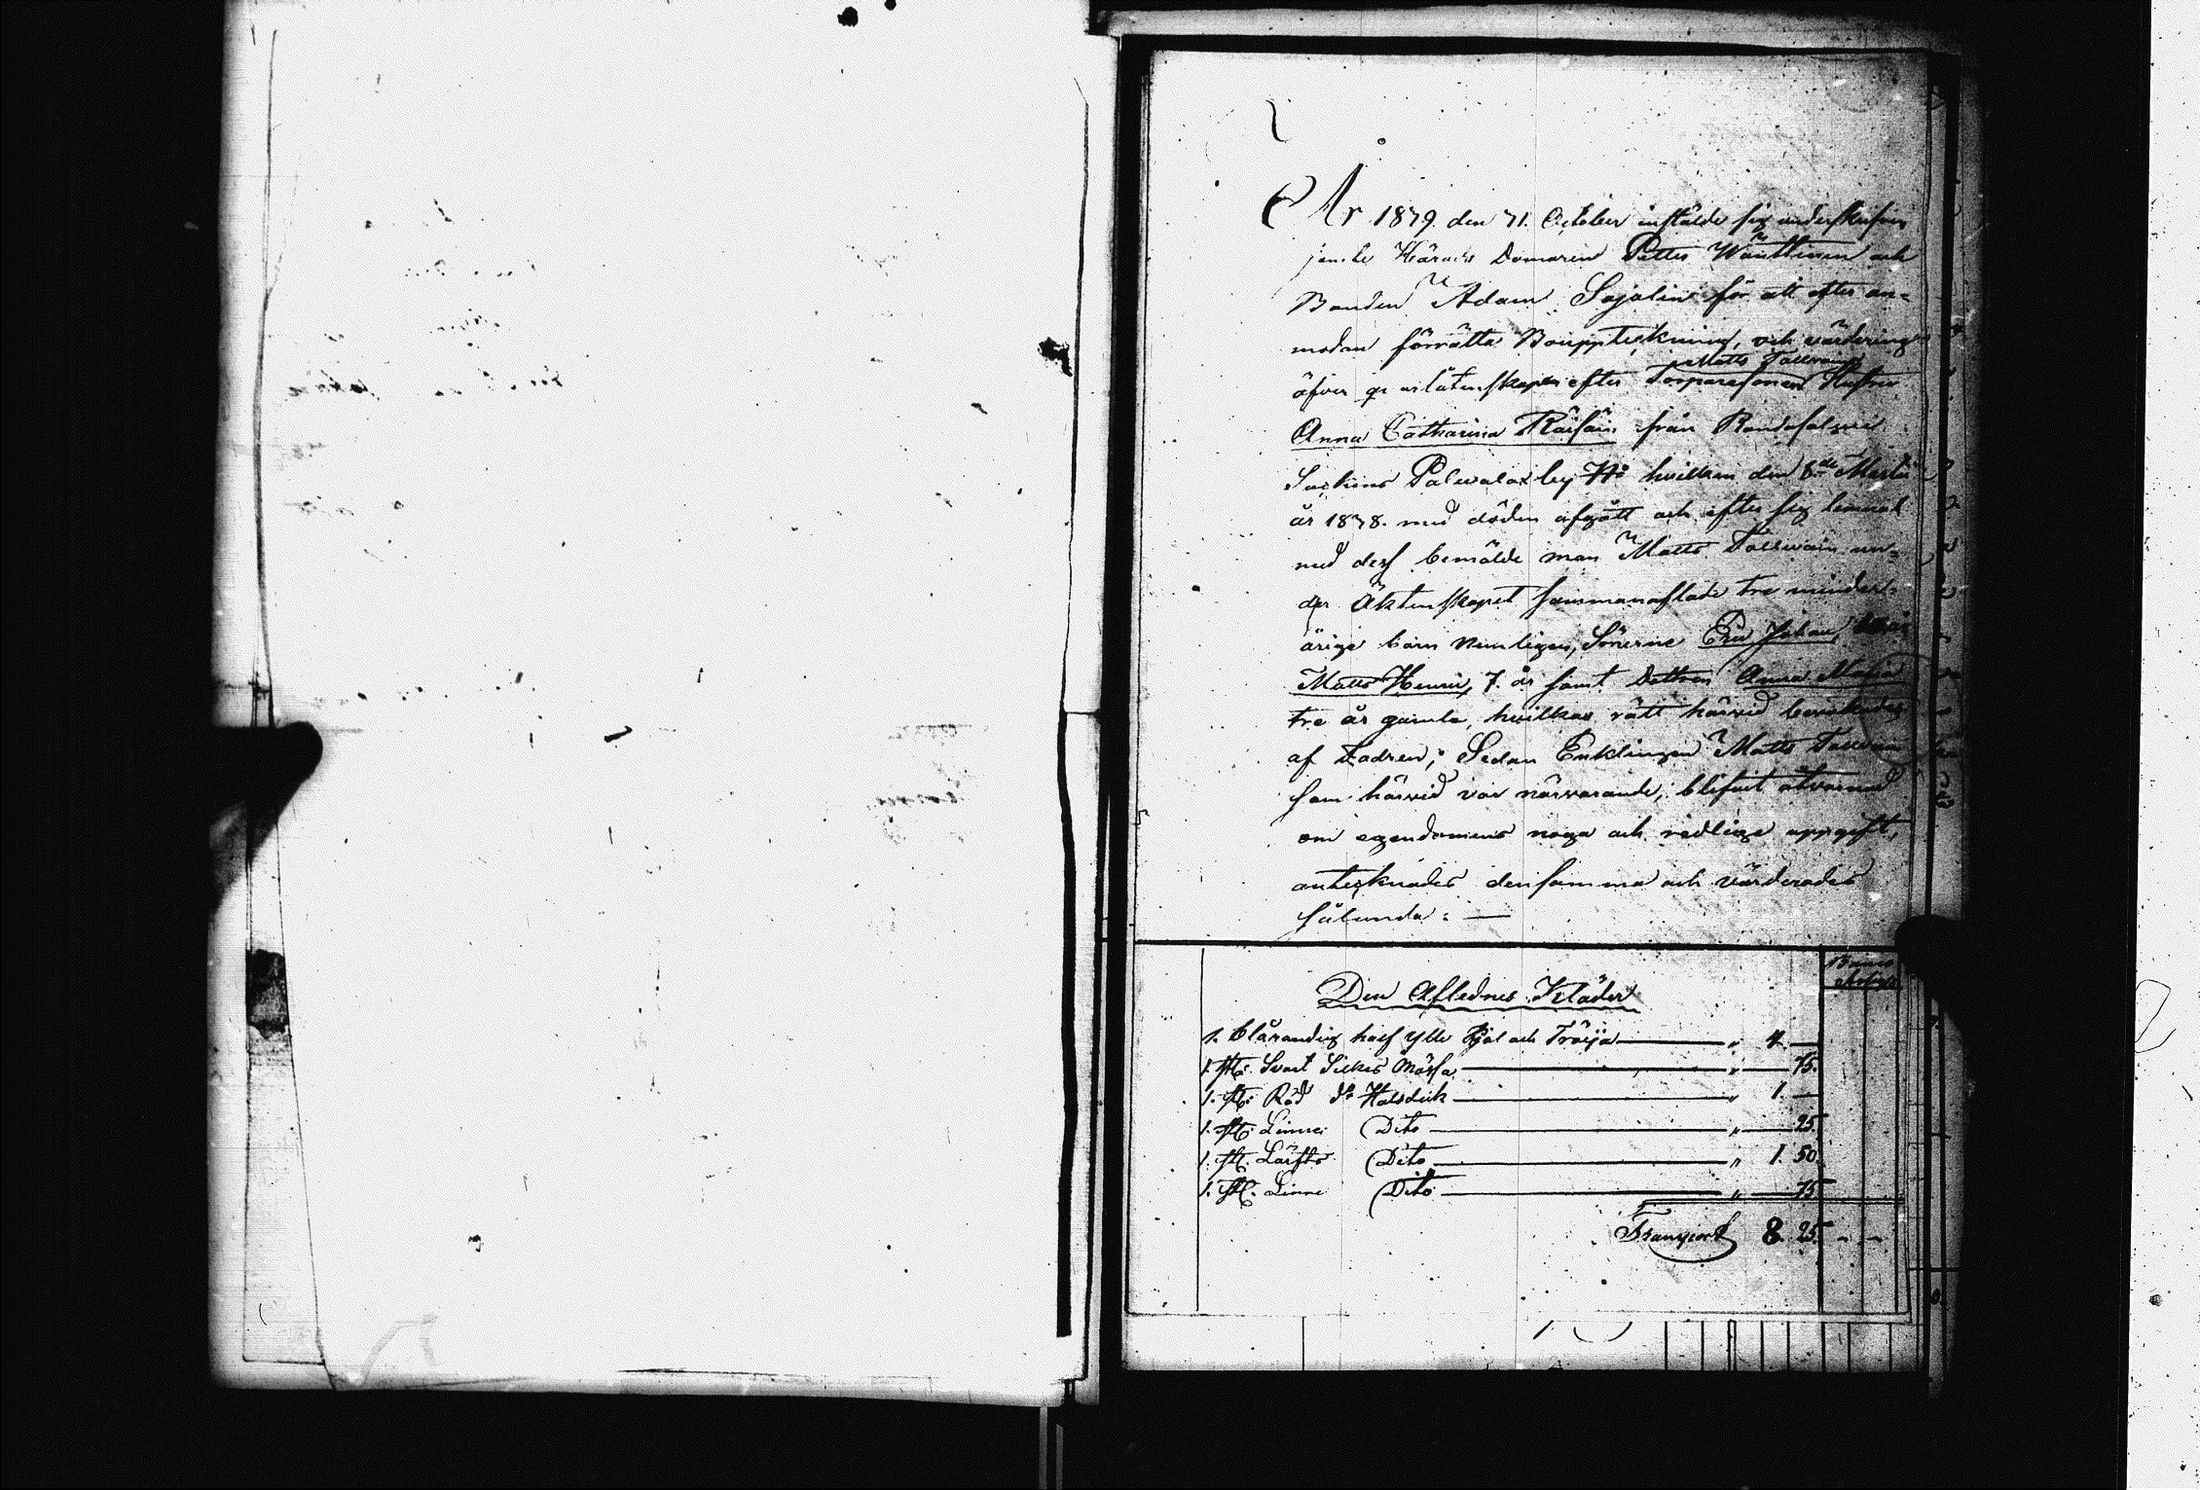 År 1839. den 31. October instälde sig undertecknad
jemte Härads Domaren Petter Wänttinen och
Bonden Adam Sojalin för att efter an=
modan förrätta Bouppteckning, och värdering
Matts Tallvain
öfver qvarlåtenskapen efter Torparesonen Hustru
Anna Catharina Räisäin från Randasalmi
Sockens Palvalax by No hvilken den 8de Martii
år 1838. med döden afgått och efter sig lemnat
med dess bemälde man Matts Tallvain un=
der Äktenskapet sammanaflade tre minder=
årige barn nemligen, Sönerne Eric Johan,
Matts Henric, 7. år samt Dottren Anna Maria
tre år gamla, hvilkas rätt härvid bevakades
af Fadren; Sedan Enklingen Matts Tallvain
som härvid var närvarande, blifvit åtvarnad
om egendomens noga och redliga uppgift,
antecknades densamma och värderades
sålunda: —
Den Aflednes Kläder
1. blårandig half ylle Kjol och Tröija — " 4. —
1. st: Svart Silkes Mössa — " — 75.
1. st: Röd do Halsduk — " 1. —
1. st: Linne Dito — " — 25.
1. st. Lärfts Dito — " 1. 50.
1. st. Linne Dito — " — 75
Transport 8. 25. - -